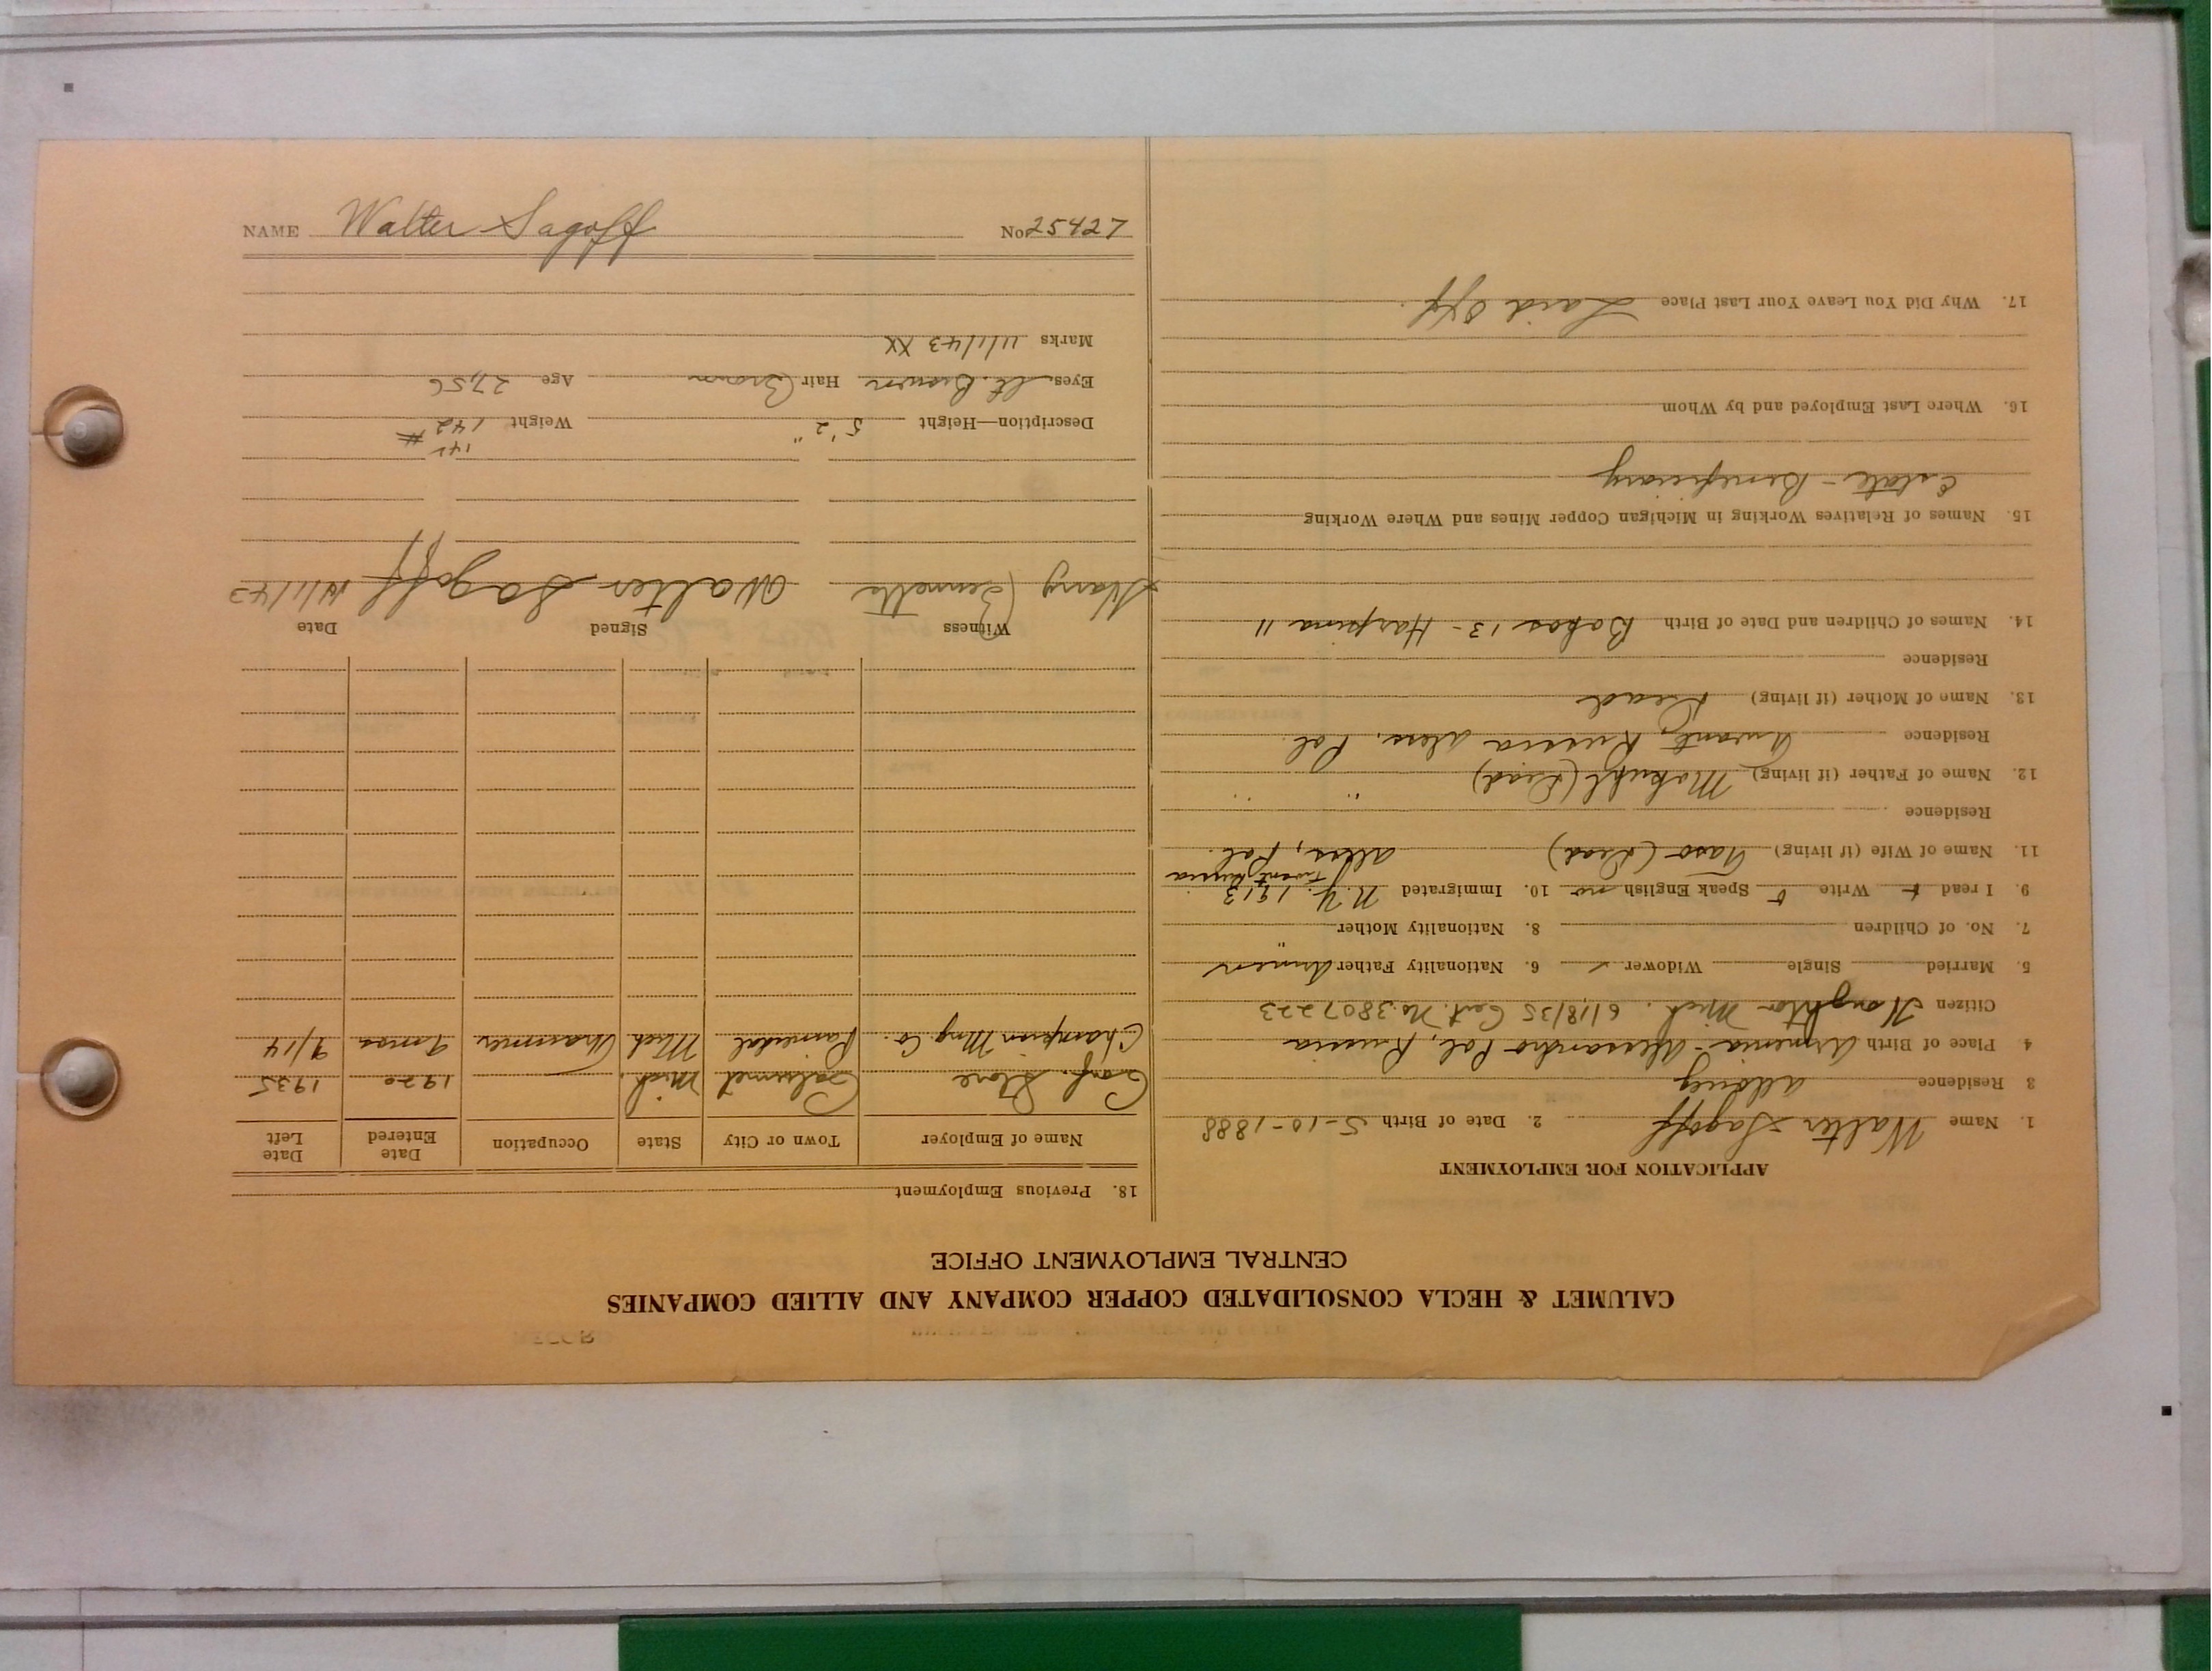 CALUMET & HECLA CONSOLIDATED COPPER COMPANY AND ALLIED COMPANIES
CENTRAL EMPLOYMENT OFFICE
APPLICATION FOR EMPLOYMENT
1. Name Walter Sagoff 2. Date of Birth 5-10-1888
3 Residence
4 Place of Birth Armenia - Alessandro Pol, Russia
Citizen Houghton Mich. 6/18/35 Cert. No. 3807223
5. Married Single Widower ✓ 6. Nationality Father Armen
7. No. of Children 8. Nationality Mother "
9. I read Write Speak English no 10. Immigrated N.Y. 1913
Russia
11. Name of Wife (if living) (Dead) Pol.
Residence
12. Name of Father (if living) (Dead) " "
Residence Russia Pol.
13. Name of Mother (if living) Dead
Residence
14. Names of Children and Date of Birth 13 - 11
15. Names of Relatives Working in Michigan Copper Mines and Where Working
Estate - Beneficiary
16. Where Last Employed and by Whom
17. Why Did You Leave Your Last Place Laid Off.
18. Previous Employment
Name of Employer Town or City State Occupation Date Entered Date Left
Store Calumet Mich. 1920 1935
Champion Mng Co. Mich 9/14
Witness Signed Date
Harry Bennetts Walter Sagoff 11/1/43
Description—Height 5'2" Weight 142 #
Eyes Lt. Brown Hair Brown Age 27, 56
Marks 11/1/43 XX
NAME Walter Sagoff No 25427